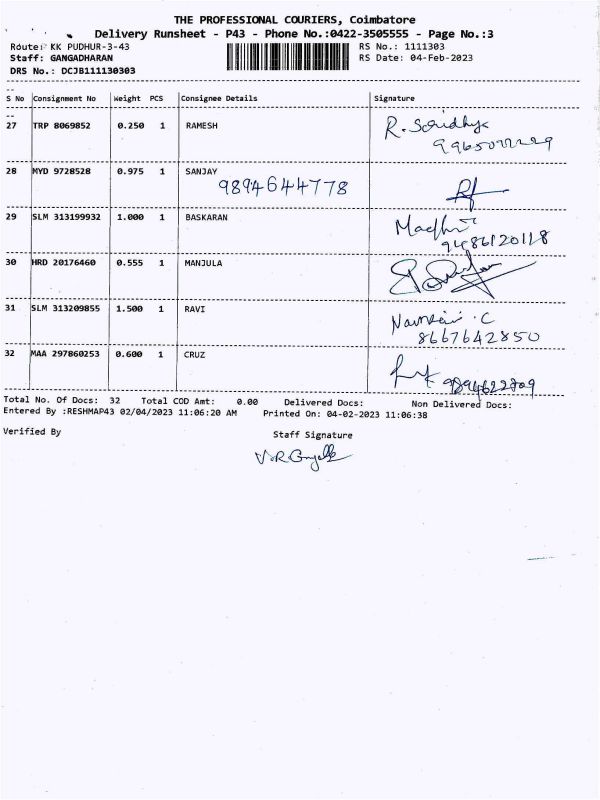 THE PROFESSIONAL COURIERS, Coimbatore
Delivery Runsheet - P43 - Phone No.:0422-3505555 - Page No.:3
Route: KK PUDHUR-3-43 RS No.: 1111303
Staff: GANGADHARAN RS Date: 04-Feb-2023
DRS No.: DCJB111130303
S No Consignment No Weight PCS Consignee Details Signature
27 TRP 8069852 0.250 1 RAMESH R.
28 MYD 9728528 0.975 1 SANJAY
9894644778
29 SLM 313199932 1.000 1 BASKARAN
9486120118
30 HRD 20176460 0.555 1 MANJULA
31 SLM 313209855 1.500 1 RAVI
8667642850
32 MAA 297860253 0.600 1 CRUZ
Total No. Of Docs: 32 Total COD Amt: 0.00 Delivered Docs: Non Delivered Docs:
Entered By :RESHMAP43 02/04/2023 11:06:20 AM Printed On: 04-02-2023 11:06:38
Verified By Staff Signature